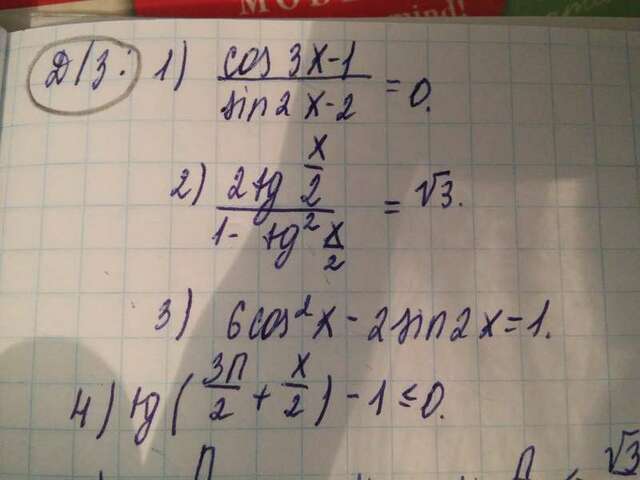 mind!
Д/З: 1) cos 3x-1 / sin 2x-2 = 0.
2) 2tg x/2 / 1- tg² x/2 = √3.
3) 6cos²x - 2sin2x=1.
4) tg(3П/2 + x/2) - 1 ≤ 0.
П П √3